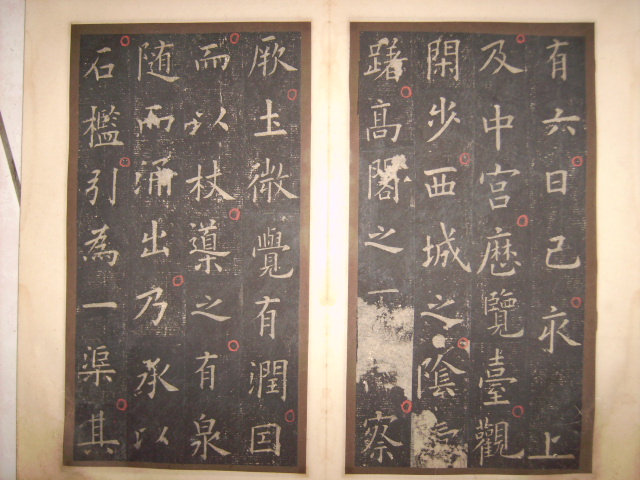 有六日己亥上
及中宫歷覽臺觀
閑步西城之陰
躇高閣之察
厥土微覺有潤因
而以杖導之有泉
随而涌出乃承以
石檻引為一渠其